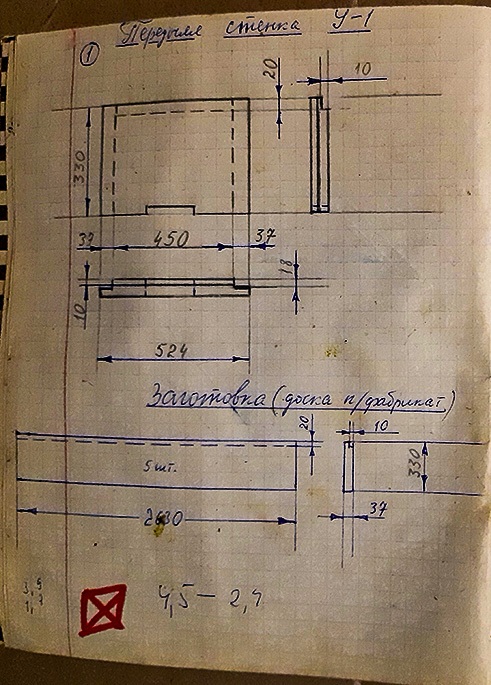 Передняя стенка У-1
1
20
10
330
37
450
37
18
10
524
Заготовка (доска п/фабрикат)
20
10
5 шт.
330
2630
37
4,5 — 2,4